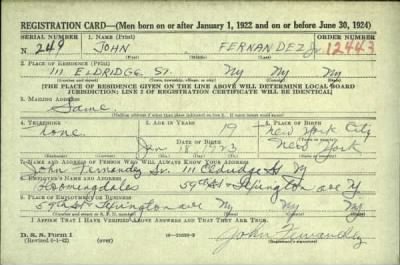 REGISTRATION CARD—(Men born on or after January 1, 1922 and on or before June 30, 1924)
SERIAL NUMBER 1. NAME (Print) ORDER NUMBER
N. 249 JOHN FERNANDEZ Jr. 12443
2. PLACE OF RESIDENCE (Print)
111 ELDRIDGE ST. NY NY NY
(Number and street) (Town, township, village, or city) (County) (State)
[THE PLACE OF RESIDENCE GIVEN ON THE LINE ABOVE WILL DETERMINE LOCAL BOARD
JURISDICTION; LINE 2 OF REGISTRATION CERTIFICATE WILL BE IDENTICAL]
3. MAILING ADDRESS
Same
4. TELEPHONE 5. AGE IN YEARS 6. PLACE OF BIRTH
none 19 New York City
DATE OF BIRTH
Jan 18, 1923 New York
7. NAME AND ADDRESS OF PERSON WHO WILL ALWAYS KNOW YOUR ADDRESS
John Fernandez Sr. 111 Eldridge St NY
8. EMPLOYER'S NAME AND ADDRESS
Bloomingdales 59th St & Lexington ave NY
9. PLACE OF EMPLOYMENT OR BUSINESS
59th St & Lexington ave NY NY NY
(Number and street or R. F. D. number) (Town) (County) (State)
I AFFIRM THAT I HAVE VERIFIED ABOVE ANSWERS AND THAT THEY ARE TRUE.
D. S. S. Form 1
(Revised 6-1-42) (over) John Fernandez